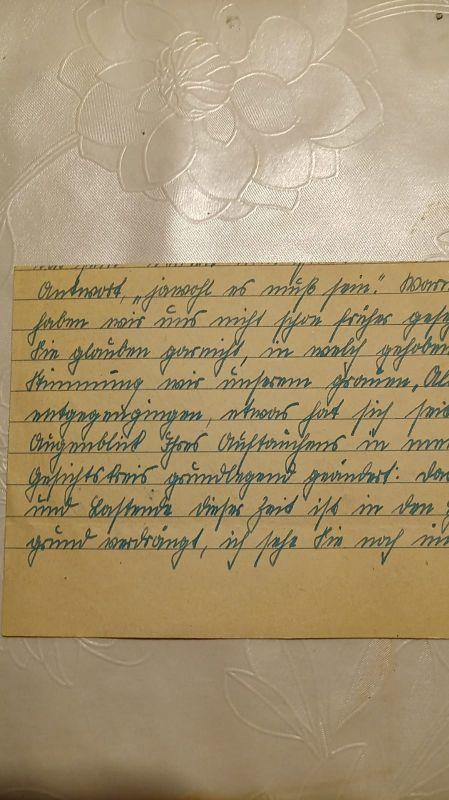 Antwort, „jawohl es muß sein." War
haben wir uns nicht schon früher gese
Sie glauben garnicht, in welch gehoben
Stimmung wir unserem grauen, Al
entgegengingen, etwas hat sich seit
Augenblick Ihres Auftauchens in mei
Gesichtskreis grundlegend geändert: das
und Lastende dieser Zeit ist in den
grund verdrängt, ich sehe Sie noch